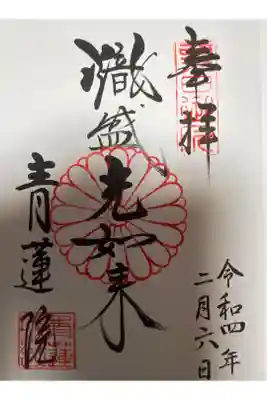 奉拝
熾盛光如来
青蓮院
令和四年
二月六日